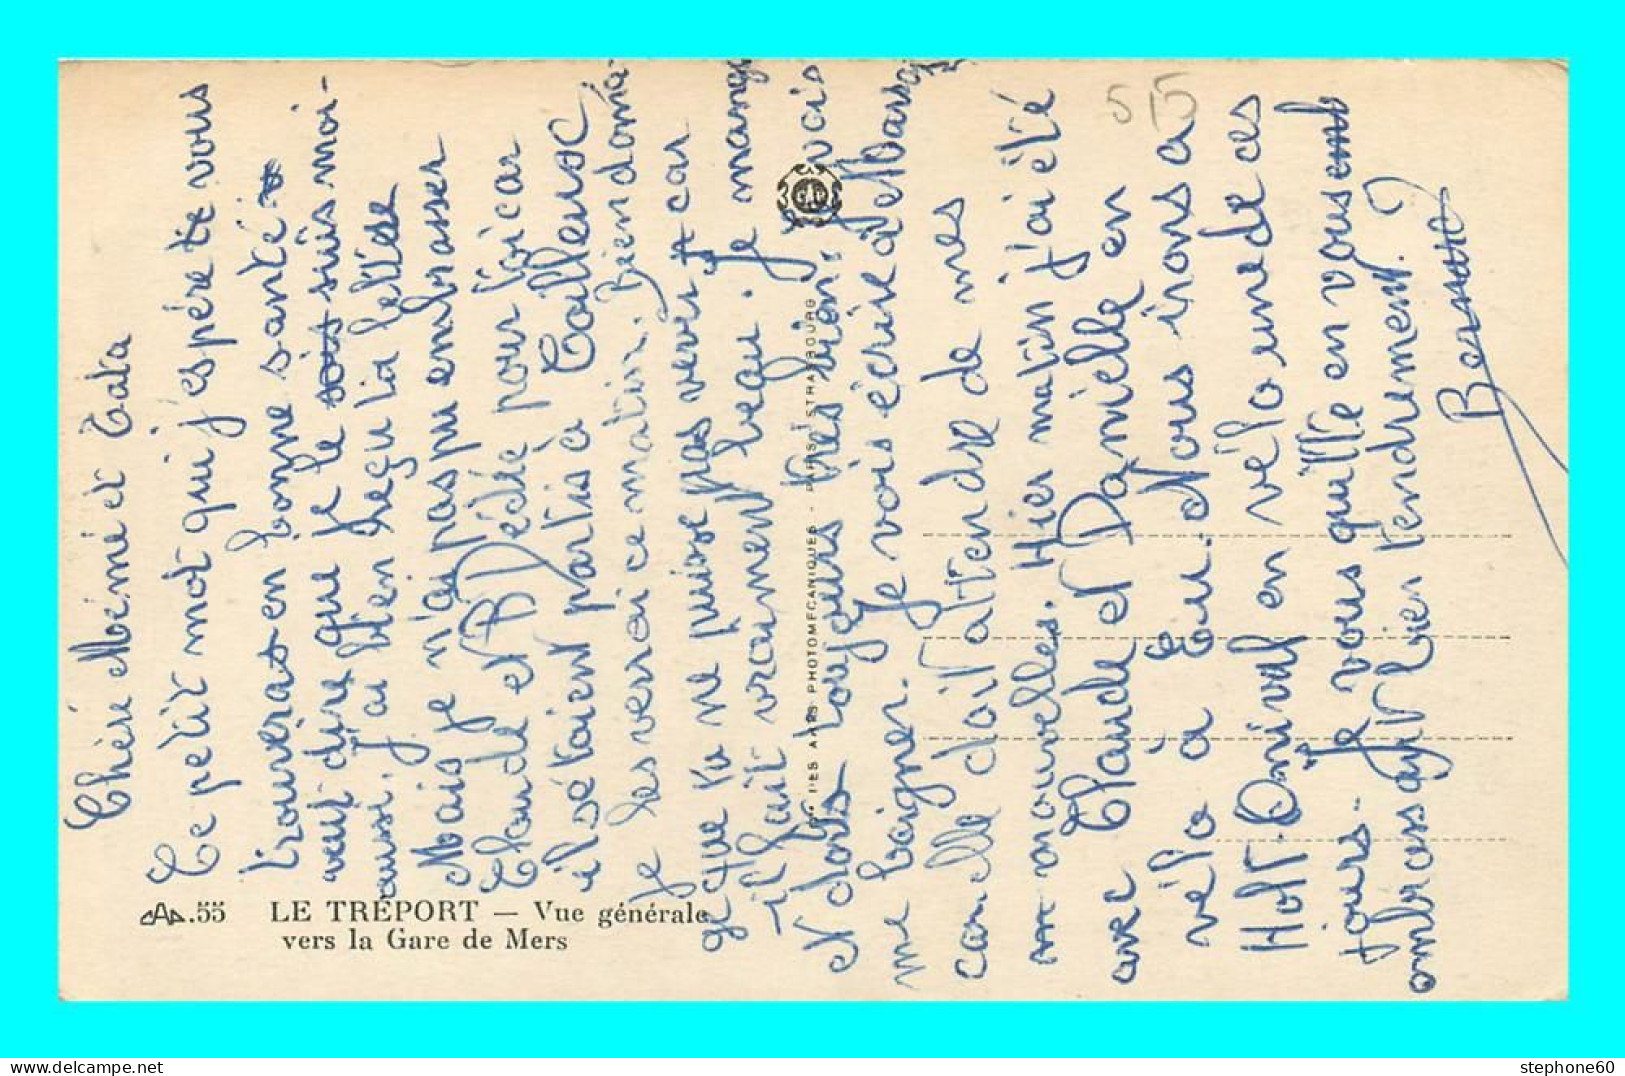 Chère Mémé et Tata
Ce petit mot qui j'espère te vous
trouveras en bonne santé
veut dire que je le suis moi-
aussi. J'ai bien reçu ta lettre
Mais je n'ai pas pu embrasser
Claude et Dédé pour toi car
ils étaient partis à
Je les verrai ce matin. Bien domà-
ge que tu ne puisse pas venir car
il fait vraiment beau. Je mange
dors toujours très bien. Je vais
me baigner. Je vois écrire à
car elle doit attendre de mes
nouvelles. Hier matin j'ai été
avec Claude et Danielle en
vélo à Eu. Nous irons a
Holt. Onival en vélo une de ces
jours. Je vous quitte en vous
embrassant bien tendrement.
Bernard
515
CAP.55 LE TRÉPORT — Vue générale
vers la Gare de Mers
CIE DES ARTS PHOTOMÉCANIQUES - PARIS-STRASBOURG
stephone60